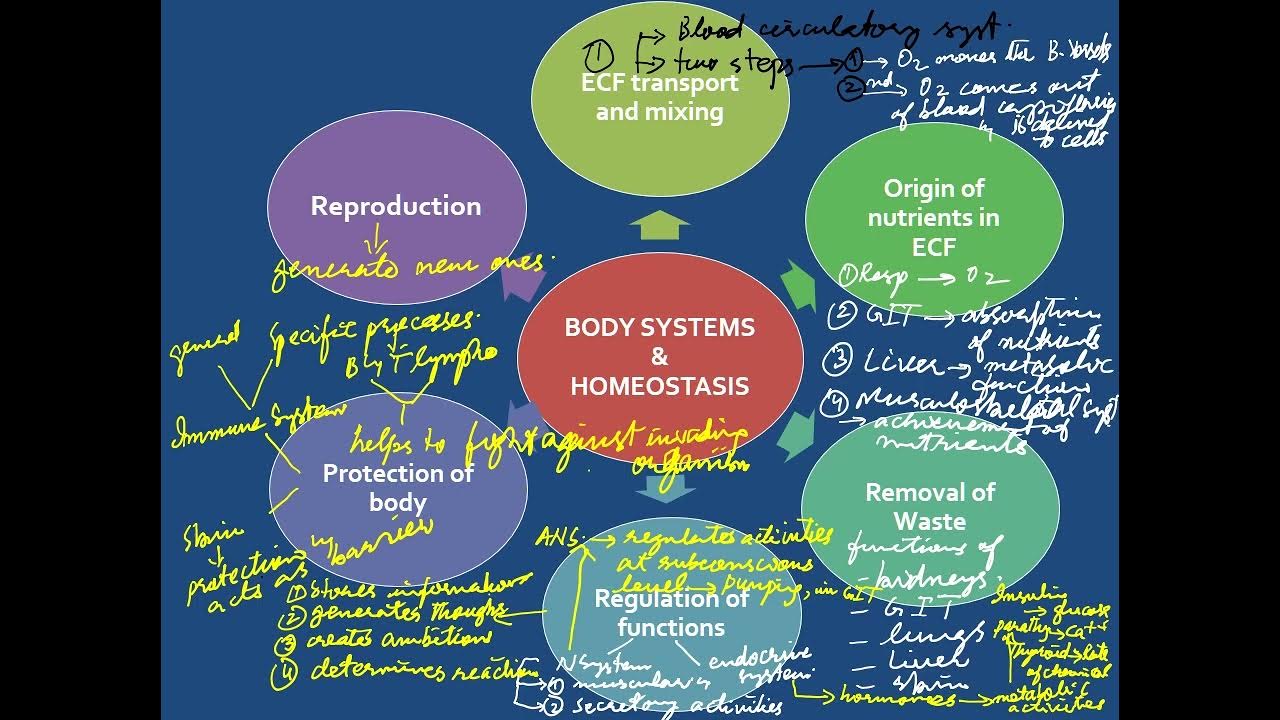 ① → Blood circulatory syst.
→ two steps → ① → O2 moves thr B. Vessels
② nd → O2 comes out
of blood capillaries
is delivered
to cells
ECF transport
and mixing
Origin of
nutrients in
ECF
① Resp → O2
② GIT → absorption
of nutrients
③ Liver → metabolic
functions
④ Musculoskeletal syst
→ achievement of
nutrients
Removal of
Waste
functions of
– kidneys.
– GIT
– lungs
– Liver
– skin
Regulation of
functions
NSystem
① muscular
② secretory activities
endocrine
system
→ hormones → metabolic
activities
→ glucose
parathy → Ca++
Thyroid → rate
of chemical
ANS. → regulates activities
at subconscious
level → Pumping, in GIT
① Stores information
② generates thoughts
③ creates ambition
④ determines reaction
Protection of
body
Immune System
general
Specific processes.
B & T lympho
helps to fight against invading
organism
Skin
protection
acts as barrier
Reproduction
generate new ones.
BODY SYSTEMS
&
HOMEOSTASIS